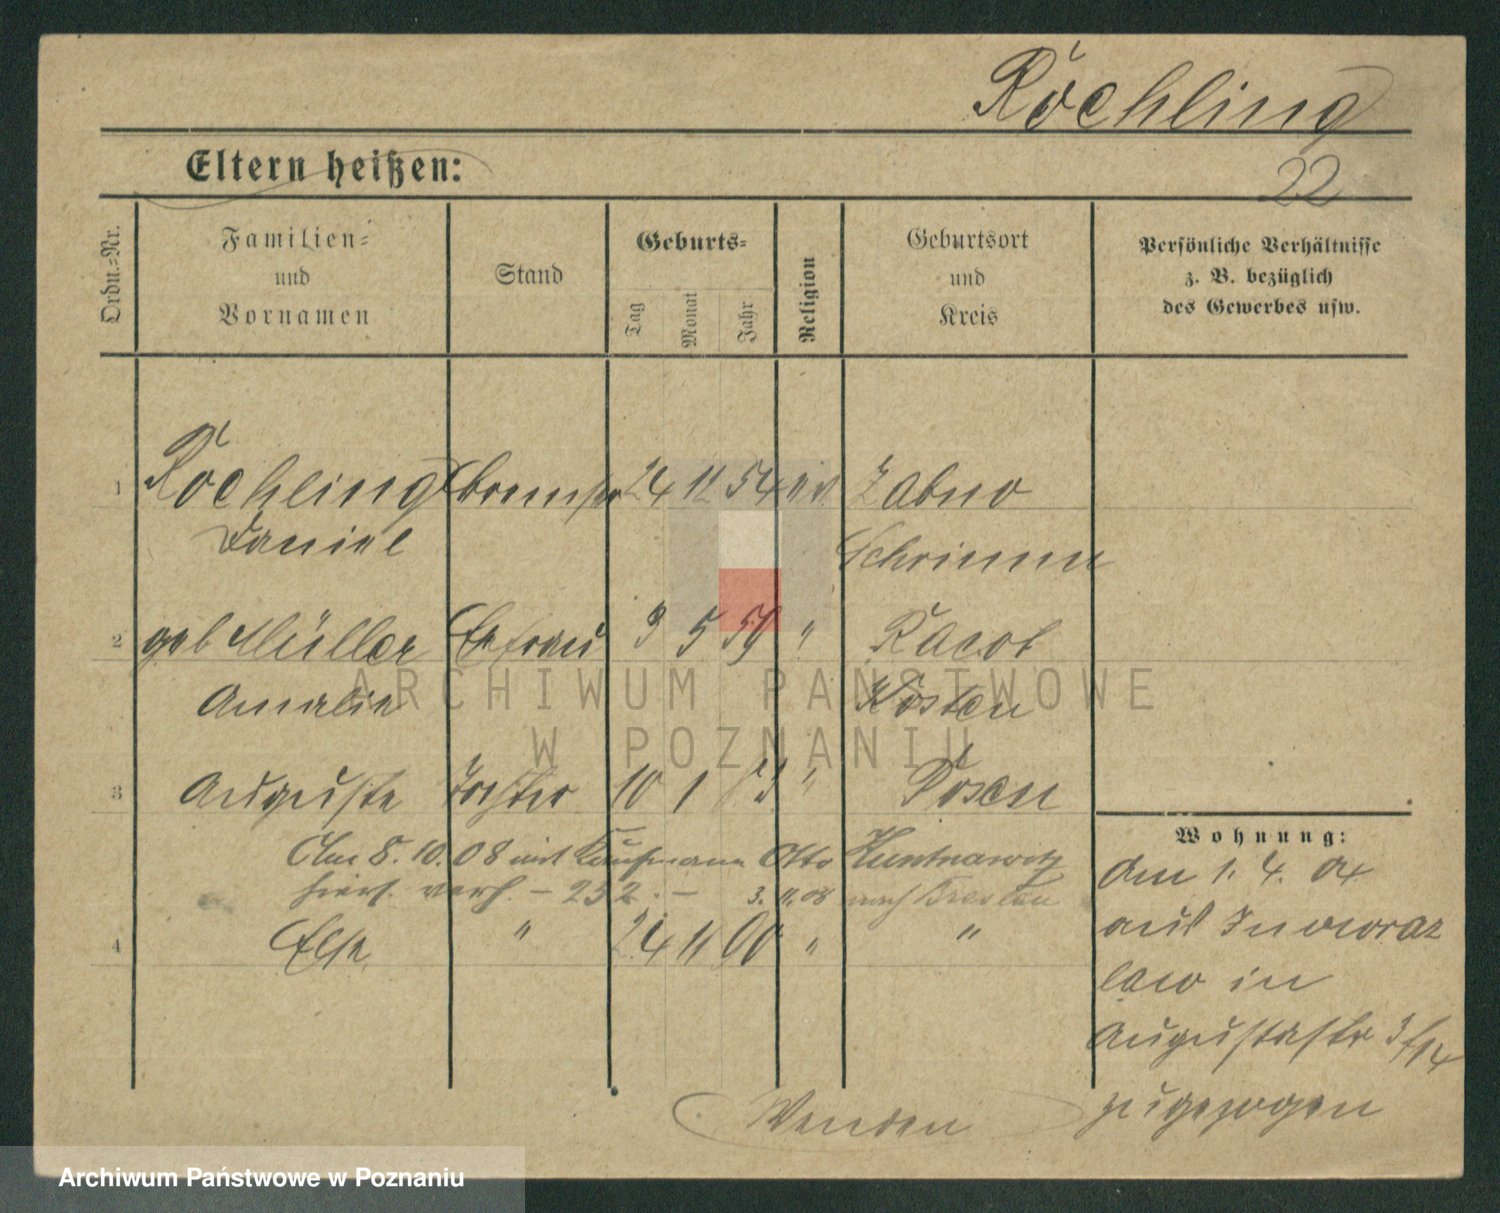 Röchling
Eltern heißen:
22
Ordn.=Nr.
Familien=
und
Vornamen
Stand
Geburts=
Tag
Monat
Jahr
Religion
Geburtsort
und
Kreis
Persönliche Verhältnisse
z. B. bezüglich
des Gewerbes usw.
1 Röchling 24 11 54 ev. Zabno
Daniel Schrimm
2 geb Müller Ehefrau 3 5 59 " Racot
Amalie Kosten
3 Auguste Tochter 10 1 83 " Posen
Am 8. 10. 08 mit Kaufmann Otto
hiers. verh. - 232. - 3. 11. 08 nach Breslau
4 Else " 24 11 90 " "
Wohnung:
Am 1. 4. 04
aus Inowraz
law in
Augustastr
zugezogen
Wenden
ARCHIWUM PAŃSTWOWE
W POZNANIU
Archiwum Państwowe w Poznaniu